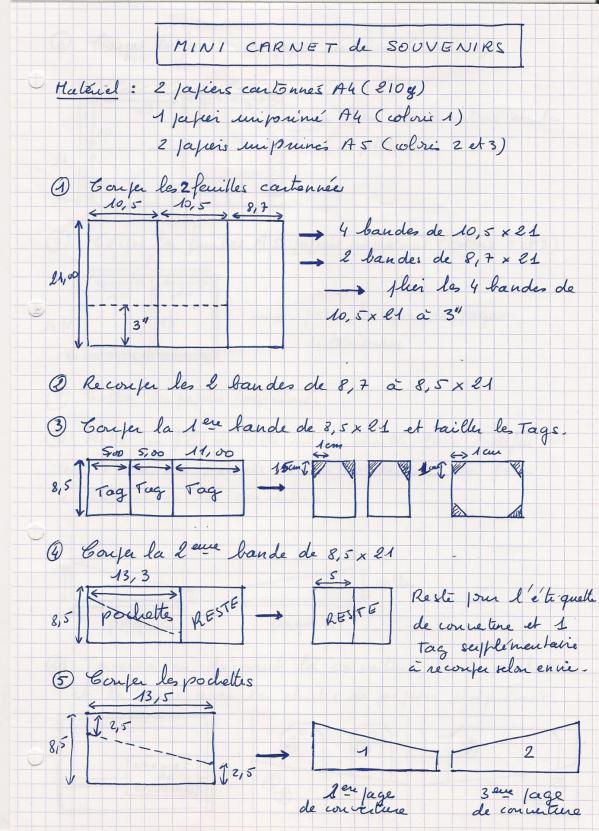 MINI CARNET de SOUVENIRS
Matériel : 2 papiers cartonnés A4 (210g)
1 papier imprimé A4 (coloris 1)
2 papiers imprimés A5 (coloris 2 et 3)
① Couper les 2 feuilles cartonnées
10,5 10,5 8,7
21,00
3"
→ 4 bandes de 10,5 x 21
→ 2 bandes de 8,7 x 21
→ plier les 4 bandes de
10,5 x 21 à 3"
② Recouper les 2 bandes de 8,7 à 8,5 x 21
③ Couper la 1ère bande de 8,5 x 21 et tailler les Tags.
5,00 5,00 11,00
8,5
Tag Tag Tag
1cm
1,5cm
1cm
1cm
④ Couper la 2ème bande de 8,5 x 21
13,3
8,5
pochettes RESTE
5
RESTE
Reste pour l'étiquette
de couverture et 1
Tag supplémentaire
à recouper selon envie.
⑤ Couper les pochettes
13,5
8,5
2,5
2,5
1 2
2ème page
de couverture
3ème page
de couverture